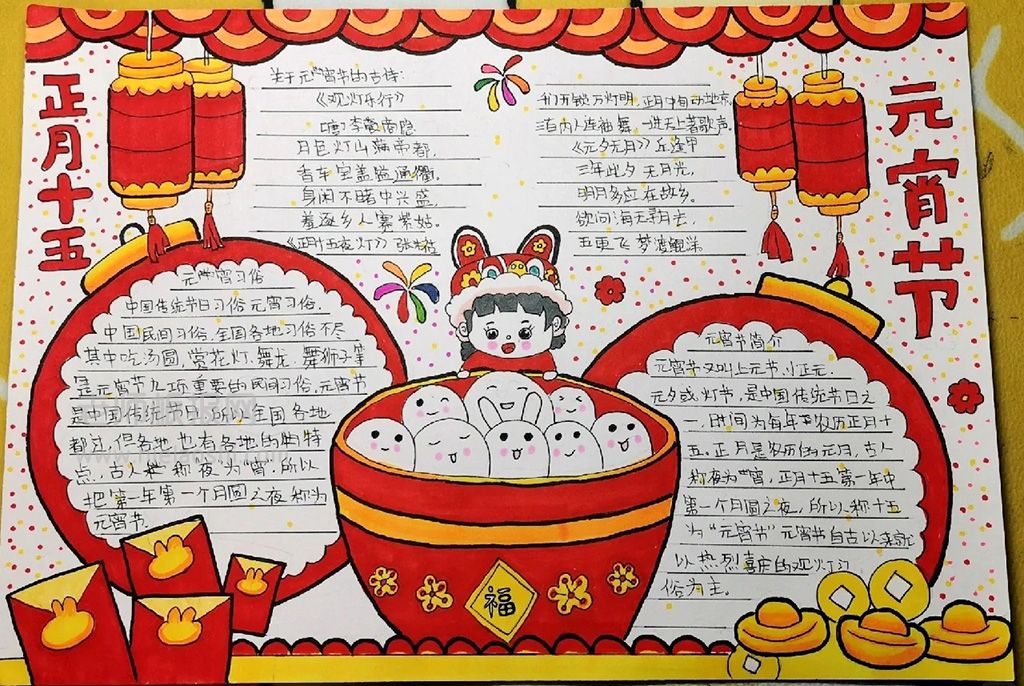 正月十五
元宵节
关于元宵节的古诗:
《观灯乐行》
李商隐
月色灯山满帝都,
香车宝盖隘通衢,
身闲不睹中兴盛,
羞逐乡人赛紫姑。
《正月十五夜灯》
万灯明,正月中旬动地京。
三百内人连袖舞,一进天上著歌声。
《元夕无月》丘逢甲
三年此夕无月光,
明月多应在故乡。
欲问海天寻月去,
五更飞梦渡鲲洋。
元宵习俗
中国传统节日习俗元宵习俗.
中国民间习俗.全国各地习俗不尽
其中吃汤圆,赏花灯,舞龙,舞狮子等
是元宵节几项重要的民间习俗.元宵节
是中国传统节日,所以全国各地
都 但各地也有各地的 特
点,古人 称"夜"为"宵",所以
把第一年第一个月圆之夜称为
元宵节.
元宵节简介
元宵节又叫上元节.小正元.
元夕或灯节,是中国传统节日之
一.时间为每年 农历正月十
五.正月是农历的元月,古人
称夜为"宵,正月十五第一年中
第一个月圆之夜,所以称十五
为"元宵节"元宵节自古以来就
以热烈喜庆的观灯习
俗为主。
福